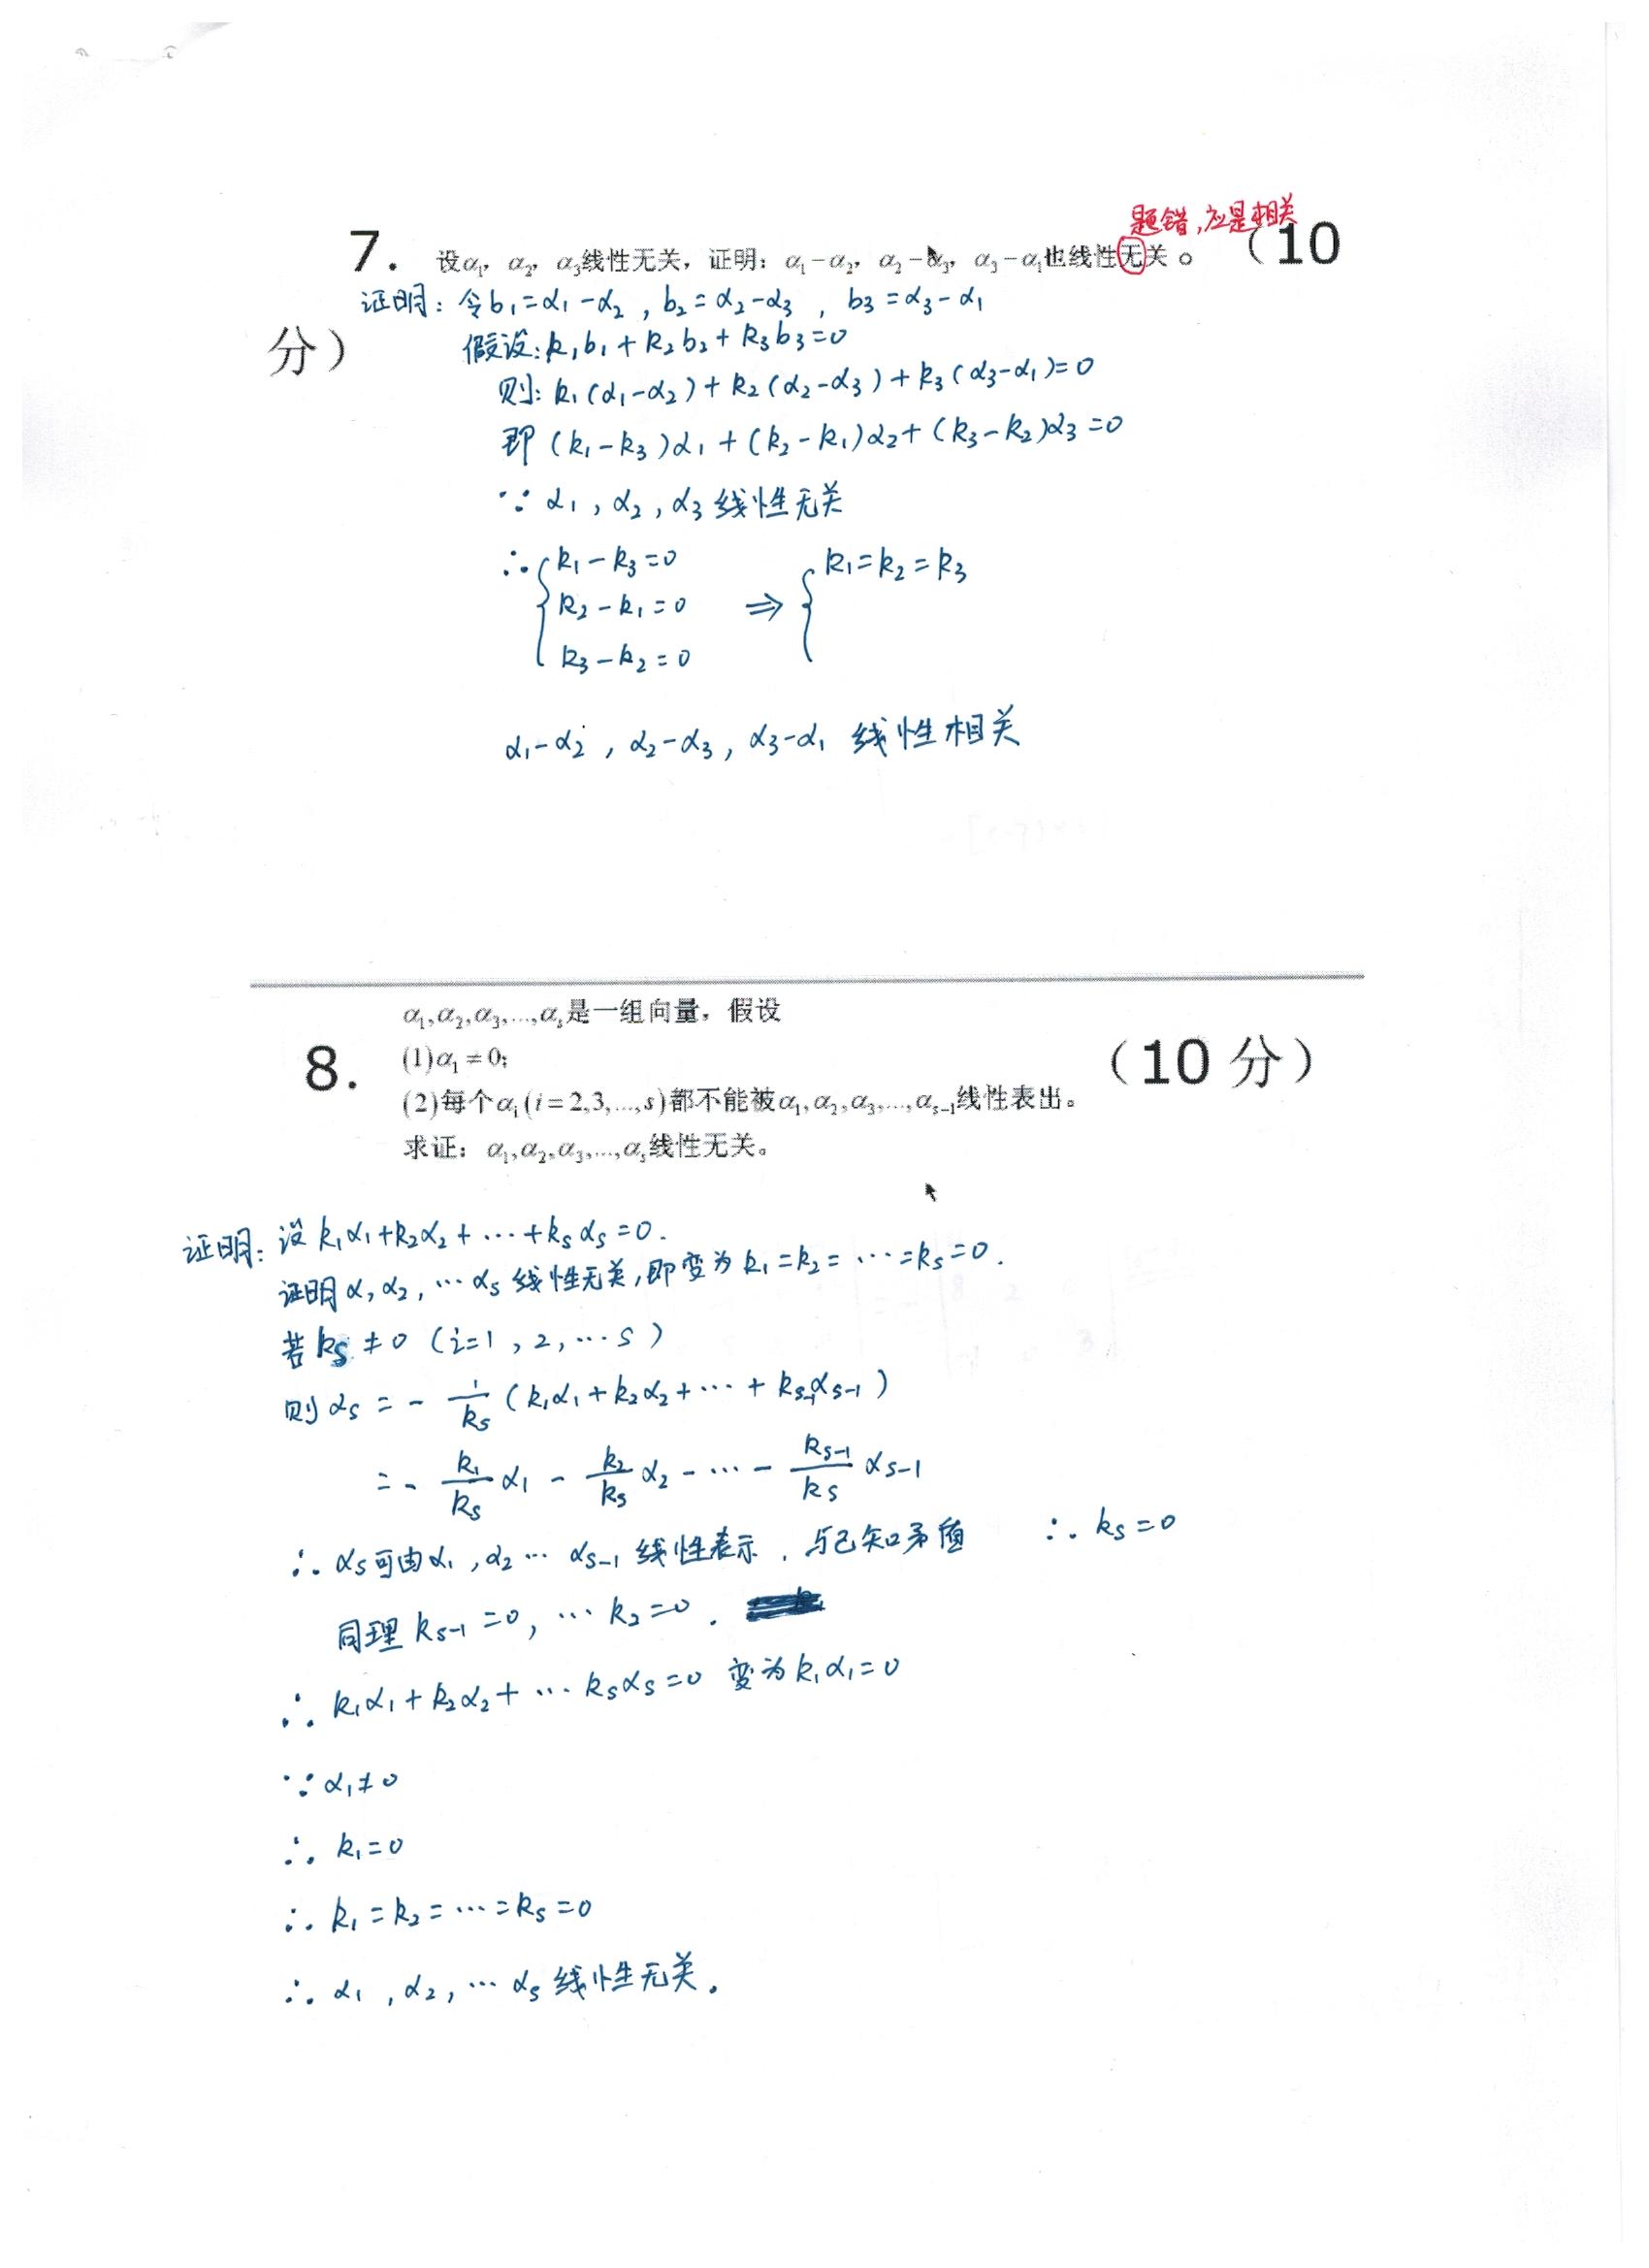 题错,应是相关
7. 设α₁, α₂, α₃线性无关，证明：α₁-α₂, α₂-α₃, α₃-α₁也线性无关。（10
分）
证明：令b₁=α₁-α₂，b₂=α₂-α₃，b₃=α₃-α₁
假设：k₁b₁+k₂b₂+k₃b₃=0
则：k₁(α₁-α₂)+k₂(α₂-α₃)+k₃(α₃-α₁)=0
即(k₁-k₃)α₁+(k₂-k₁)α₂+(k₃-k₂)α₃=0
∵ α₁, α₂, α₃ 线性无关
∴ { k₁-k₃=0 ⇒ { k₁=k₂=k₃
k₂-k₁=0
k₃-k₂=0
α₁-α₂, α₂-α₃, α₃-α₁ 线性相关
α₁,α₂,α₃,...,αₛ是一组向量，假设
8. (1)α₁≠0; （10 分）
(2)每个αᵢ(i=2,3,...,s)都不能被α₁,α₂,α₃,...,αₛ₋₁线性表出。
求证：α₁,α₂,α₃,...,αₛ线性无关。
证明：设k₁α₁+k₂α₂+…+kₛαₛ=0.
证明α,α₂,…αₛ线性无关,即变为k₁=k₂=…=kₛ=0.
若kₛ≠0 (i=1, 2, …s)
则αₛ=-1/kₛ(k₁α₁+k₂α₂+…+kₛ₋₁αₛ₋₁)
=-k₁/kₛ α₁-k₂/kₛ α₂-…-kₛ₋₁/kₛ αₛ₋₁
∴ αₛ可由α₁, α₂…αₛ₋₁线性表示，与已知矛盾 ∴ kₛ=0
同理kₛ₋₁=0, …k₂=0.
∴ k₁α₁+k₂α₂+…kₛαₛ=0 变为k₁α₁=0
∵ α₁≠0
∴ k₁=0
∴ k₁=k₂=…=kₛ=0
∴ α₁, α₂, …αₛ线性无关.